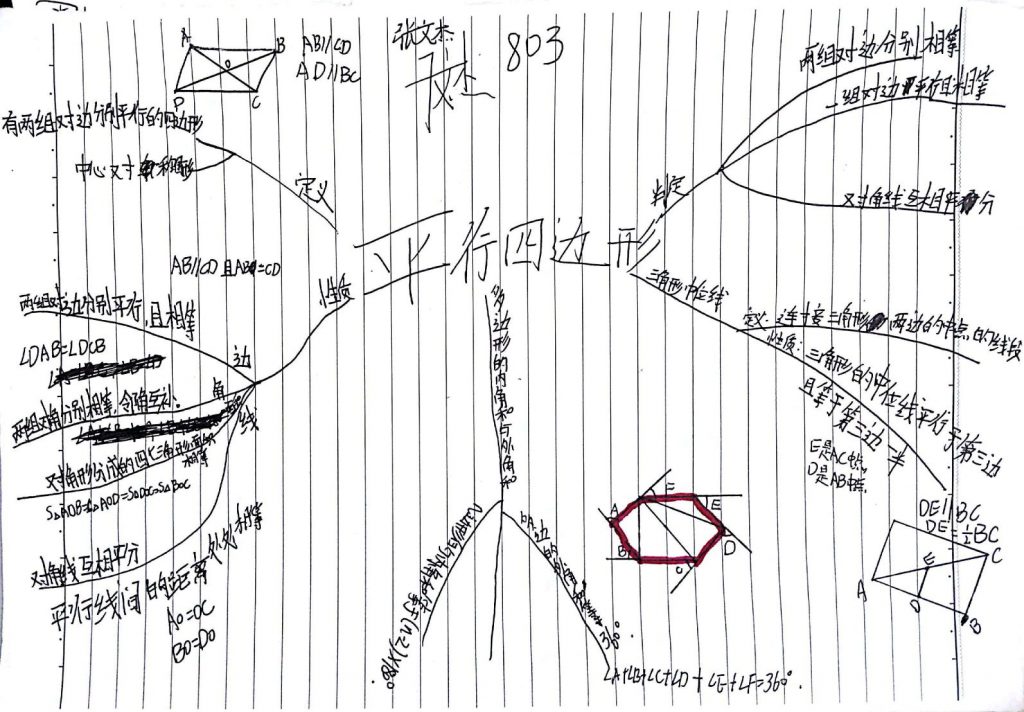 张文杰
803
A
B
O
C
D
AB//CD
AD//BC
平行四边形
定义
有两组对边分别平行的四边形
中心对称图形
性质
AB//CD且AB=CD
两组对边分别平行,且相等
边
∠DAB=∠DCB
角
两组对角分别相等,令角互补。
线
对角形分成的四个三角形面积
相等
S△AOB=S△AOD=S△DOC=S△BOC
对角线互相平分
平行线间的距离处处相等
AO=OC
BO=DO
多边形的内角和与外角和
等于(n-2)×180°
360°
∠A+∠B+∠C+∠D+∠E+∠F=360°.
A
B
C
D
E
F
判定
两组对边分别相等
一组对边平行且相等
对角线互相平分
三角形中位线
定义:连接三角形两边的中点的线段
性质:三角形的中位线平行于第三边
且等于第三边一半
E是AC中点,
D是AB中点.
DE//BC
DE=½BC
A
E
C
D
B